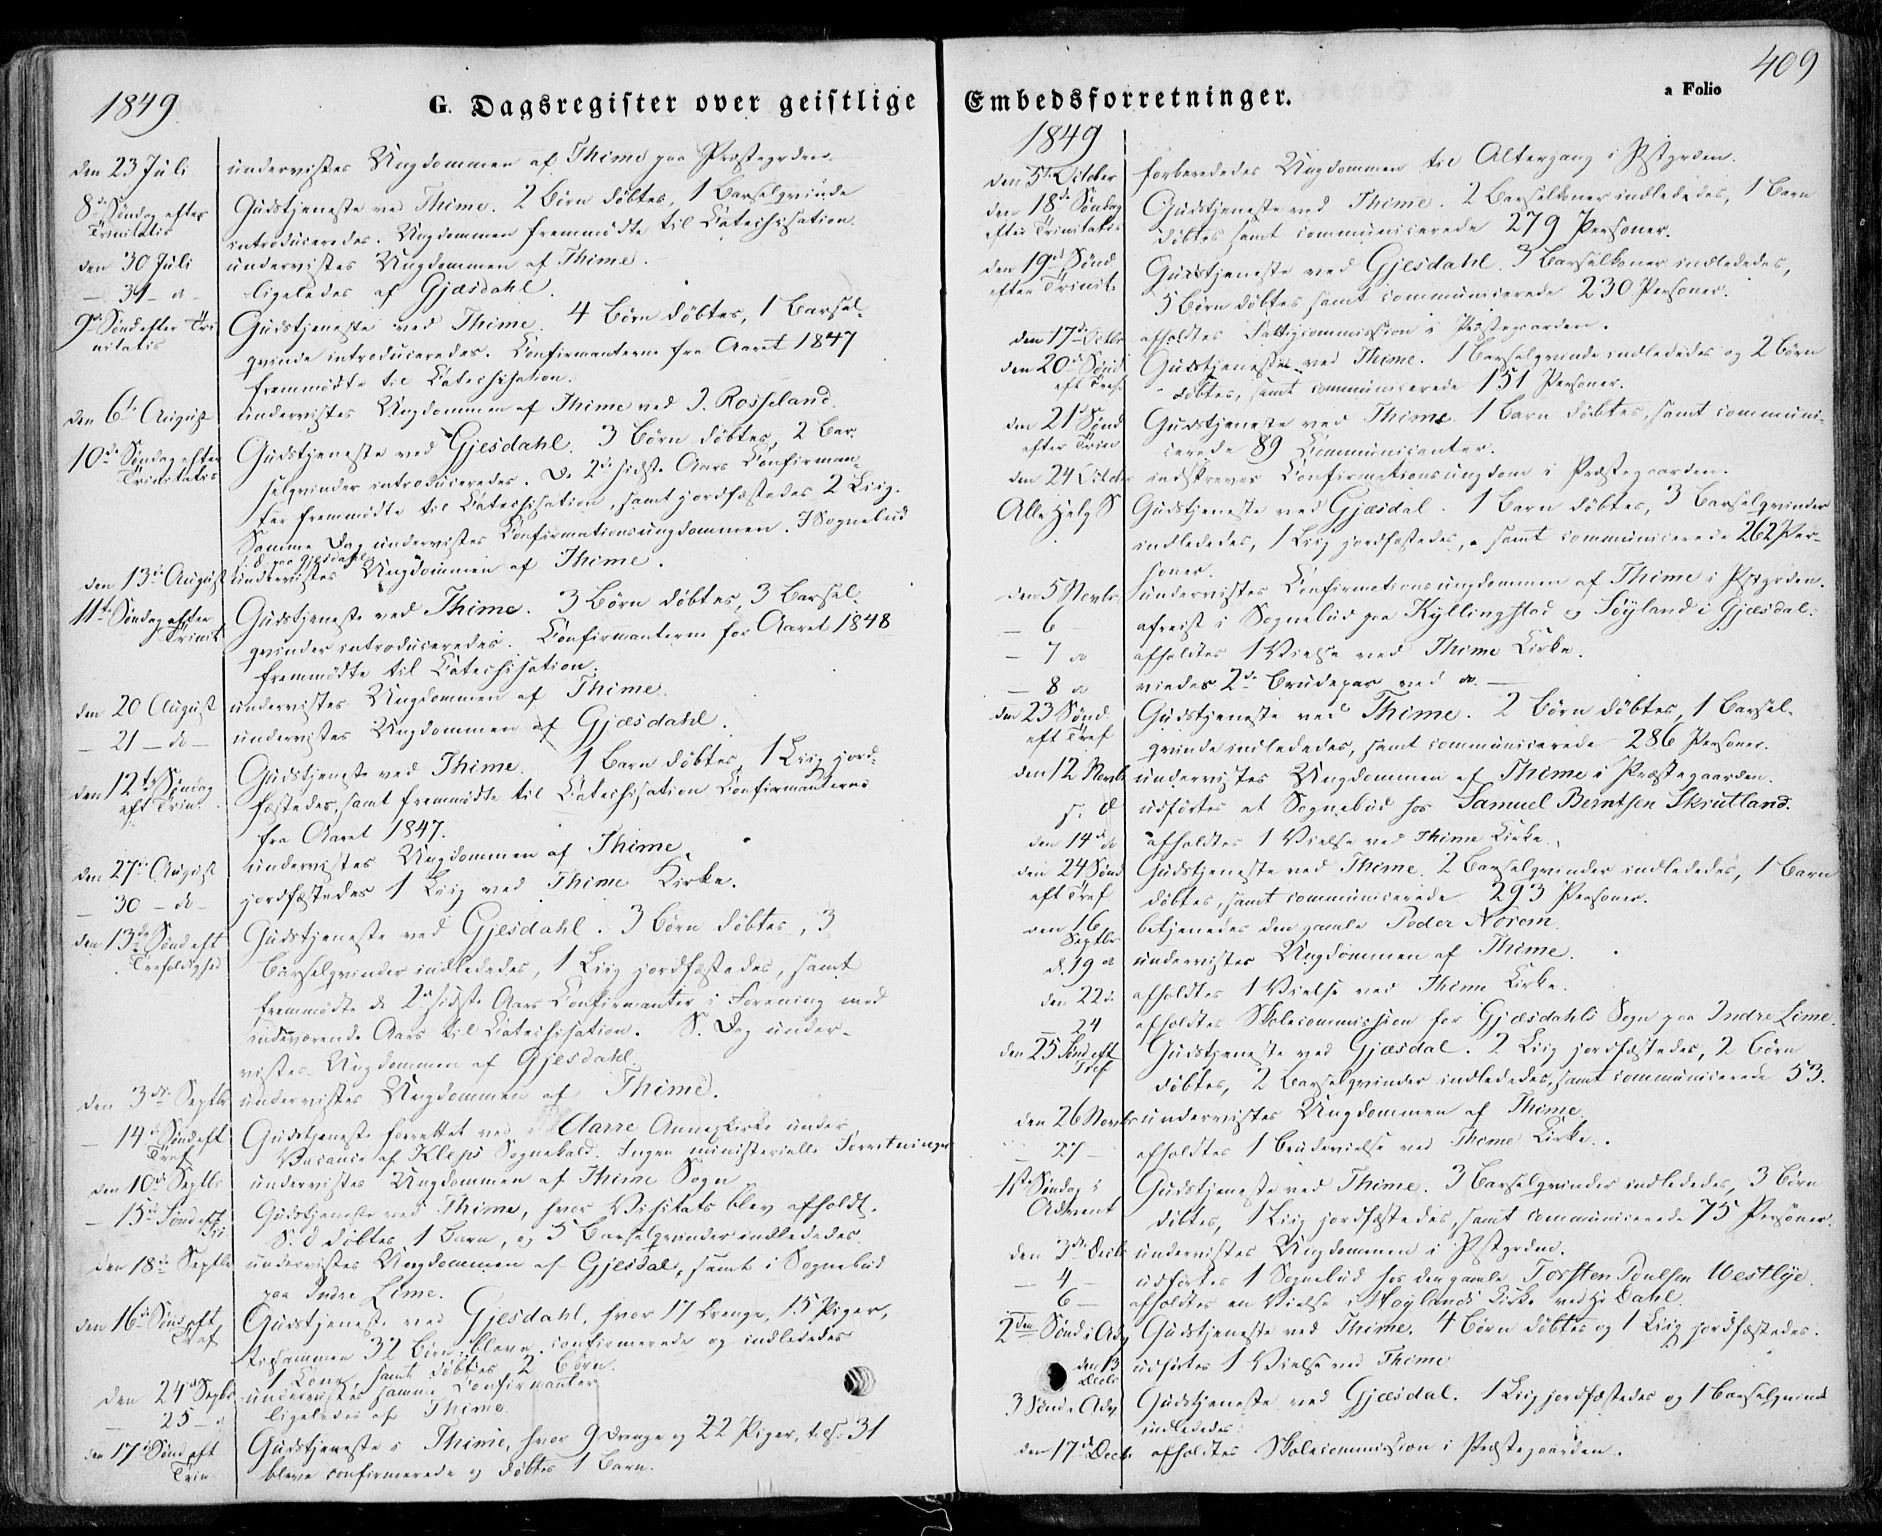 409
G. Dagsregister over geistlige Embedsforretninger.
a Folio
1849
den 23 Juli undervistes Ungdommen af Thime paa Præstegrden.
8de Søndag efter Trinitatis
Gudstjeneste ved Thime. 2 Børn døbtes, 1 Barselqvinde
introduceredes. Ungdommen fremmødte til Catechisation.
den 30 Juli undervistes Ungdommen af Thime.
— 31 — d — ligeledes af Gjæsdahl.
9de Sønd efter Trinitatis
Gudstjeneste ved Thime. 4 Børn døbtes, 1 Barsel-
qvinde introduceredes. Confirmanterne fra Aaret 1847
fremmødte til Catechisation.
den 6te August undervistes Ungdommen af Thime ved J. Rosseland.
10de Søndag efter Trinitatis
Gudstjeneste ved Gjesdahl. 3 Børn døbtes, 2 Bar-
selqvinder introduceredes. De 2de sidste Aars Confirman-
ter fremmødte til Catechisation, samt jordfæstedes 2 Liig.
Samme Dag undervistes Confirmationsungdommen. I Sognebud
s. D. paa Gjesdahl.
den 13de August undervistes Ungdommen af Thime.
11te Søndag efter Trinit
Gudstjeneste ved Thime. 3 Børn døbtes, 3 Barsel-
qvinder introduceredes. Confirmanterne for Aaret 1848
fremmødte til Catechisation.
den 20 August undervistes Ungdommen af Thime.
— 21 — do — undervistes Ungdommen af Gjæsdahl.
den 12te Søndag eft Trin.
Gudstjeneste ved Thime. 1 Barn døbtes, 1 Liig jord-
fæstedes, samt fremmødte til Catechisation Confirmanterne
fra Aaret 1847.
den 27de August undervistes Ungdommen af Thime.
— 30 — do — jordfæstedes 1 Liig ved Thime Kirke.
den 13de Sønd eft Trefoldighed
Gudstjeneste ved Gjesdahl. 3 Børn døbtes, 3
Barselqvinder indlededes, 1 Liig jordfæstedes, samt
fremmødte de 2de sidste Aars Confirmanter i Forening med
indeværende Aars til Catechisation. S. Dag under-
vistes Ungdommen af Gjesdahl.
den 3die Septbr undervistes Ungdommen af Thime.
— 14de Sønd eft Tref
Gudstjeneste forrettet ved Aarre Annexkirke under
Vacance af Kleps Sognekald. Ingen ministerielle Forretninger
den 10de Septbr undervistes Ungdommen af Thime Sogn
— 15de Sønd eft Tri
Gudstjeneste ved Thime, hvor Visitats blev afholdt.
S. d døbtes 1 Barn, og 3 Barselqvinder indlededes.
den 18de Septbr undervistes Ungdommen af Gjesdal, samt i Sognebud
paa Indre Lime.
den 16de Sønd eft Tref
Gudstjeneste ved Gjesdahl, hvor 17 Drenge, 15 Piger,
tilsammen 32 Børn bleve confirmerede og indlededes
1 Kone, samt døbtes 2 Børn.
den 24de Septbr undervistes samme Confirmanter
— 25 — d ligeledes af Thime
den 17de Sønd eft Trin
Gudstjeneste i Thime, hvor 9 Drenge og 22 Piger, tils: 31
bleve confirmerede og døbtes 1 Barn.
1849
den 5te October forberededes Ungdommen til Altergang i Pstgrden.
den 18de Søndag efter Trinitatis
Gudstjeneste ved Thime. 2 Barselkoner indlededes, 1 Barn
døbtes samt communicerede 279 Personer.
den 19de Sønd efter Trinit.
Gudstjeneste ved Gjesdahl. 3 Barselkoner indlededes,
5 Børn døbtes, samt communicerede 230 Personer.
den 17de Octbr afholdtes Fattigcommission i Præstegaarden.
den 20de Sønd eft Tref.
Gudstjeneste ved Thime. 1 Barselqvinde indlededes og 2 Børn
døbtes, samt communicerede 151 Personer.
den 21de Sønd efter Trin
Gudstjeneste ved Thime. 1 Barn døbtes, samt communi-
cerede 89 Communicanter.
den 24 Octobr indskreves Confirmationsungdom i Præstegaarden.
Alle Helg S
Gudstjeneste ved Gjæsdal. 1 Barn døbtes, 3 Barselqvinder
indlededes, 1 Liig jordfæstedes, samt communicerede 262 Per-
soner.
den 5 Novbr. undervistes Confirmationsungdommen af Thime i Pstgrden.
— 6 — afreist i Sognebud paa Kyllingstad og Søyland i Gjæsdal.
— 7 d afholdtes 1 Vielse ved Thime Kirke.
— 8 d viedes 2de Brudepar ved do. —
den 23 Sønd eft Tref
Gudstjeneste ved Thime. 2 Børn døbtes, 1 Barsel-
qvinde indlededes, samt communicerede 286 Personer.
den 12 Novbr undervistes Ungdommen af Thime i Præstegaarden.
s. d udførtes et Sognebud hos Samuel Berntsen Skrutland.
den 14de do afholdtes 1 Vielse ved Thime Kirke.
den 24 Sønd eft Tref
Gudstjeneste ved Thime. 2 Barselqvinder indlededes, 1 Barn
døbtes, samt communicerede 293 Personer.
den 16 Septbr betjenedes den gamle Peder Norem.
d. 19 d undervistes Ungdommen af Thime.
den 22de afholdtes 1 Vielse ved Thime Kirke.
— 24 afholdtes Skolecommission for Gjæsdahls Sogn paa Indre Lime.
den 25 Sønd eft Tref
Gudstjeneste ved Gjæsdal. 2 Liig jordfæstedes, 2 Børn
døbtes, 2 Barselqvinder indlededes, samt communicerede 53.
den 26 Novbr undervistes Ungdommen af Thime.
— 27 — afholdtes 1 Brudevielse ved Thime Kirke.
1ste Søndag i Advent
Gudstjeneste ved Thime. 3 Barselqvinder indlededes, 3 Børn
døbtes, 1 Liig jordfæstedes, samt communicerede 75 Personer.
den 3die Decbr undervistes Ungdommen i Pstgrden.
— 4 — udførtes 1 Sognebud hos den gamle Torsten Poulsen Westlye.
6 — afholdtes en Vielse i Høylands Kirke ved Hr Dahl.
2den Sønd i Adv
Gudstjeneste ved Thime. 4 Børn døbtes og 1 Liig jordfæstedes.
den 13 Decbr udførtes 1 Vielse ved Thime
3 Sønd i Adv
Gudstjeneste ved Gjæsdal. 1 Liig jordfæstedes og 1 Barselqvinde
indlededes.
den 17de Decbr. afholdtes Skolecommission i Præstegaarden.